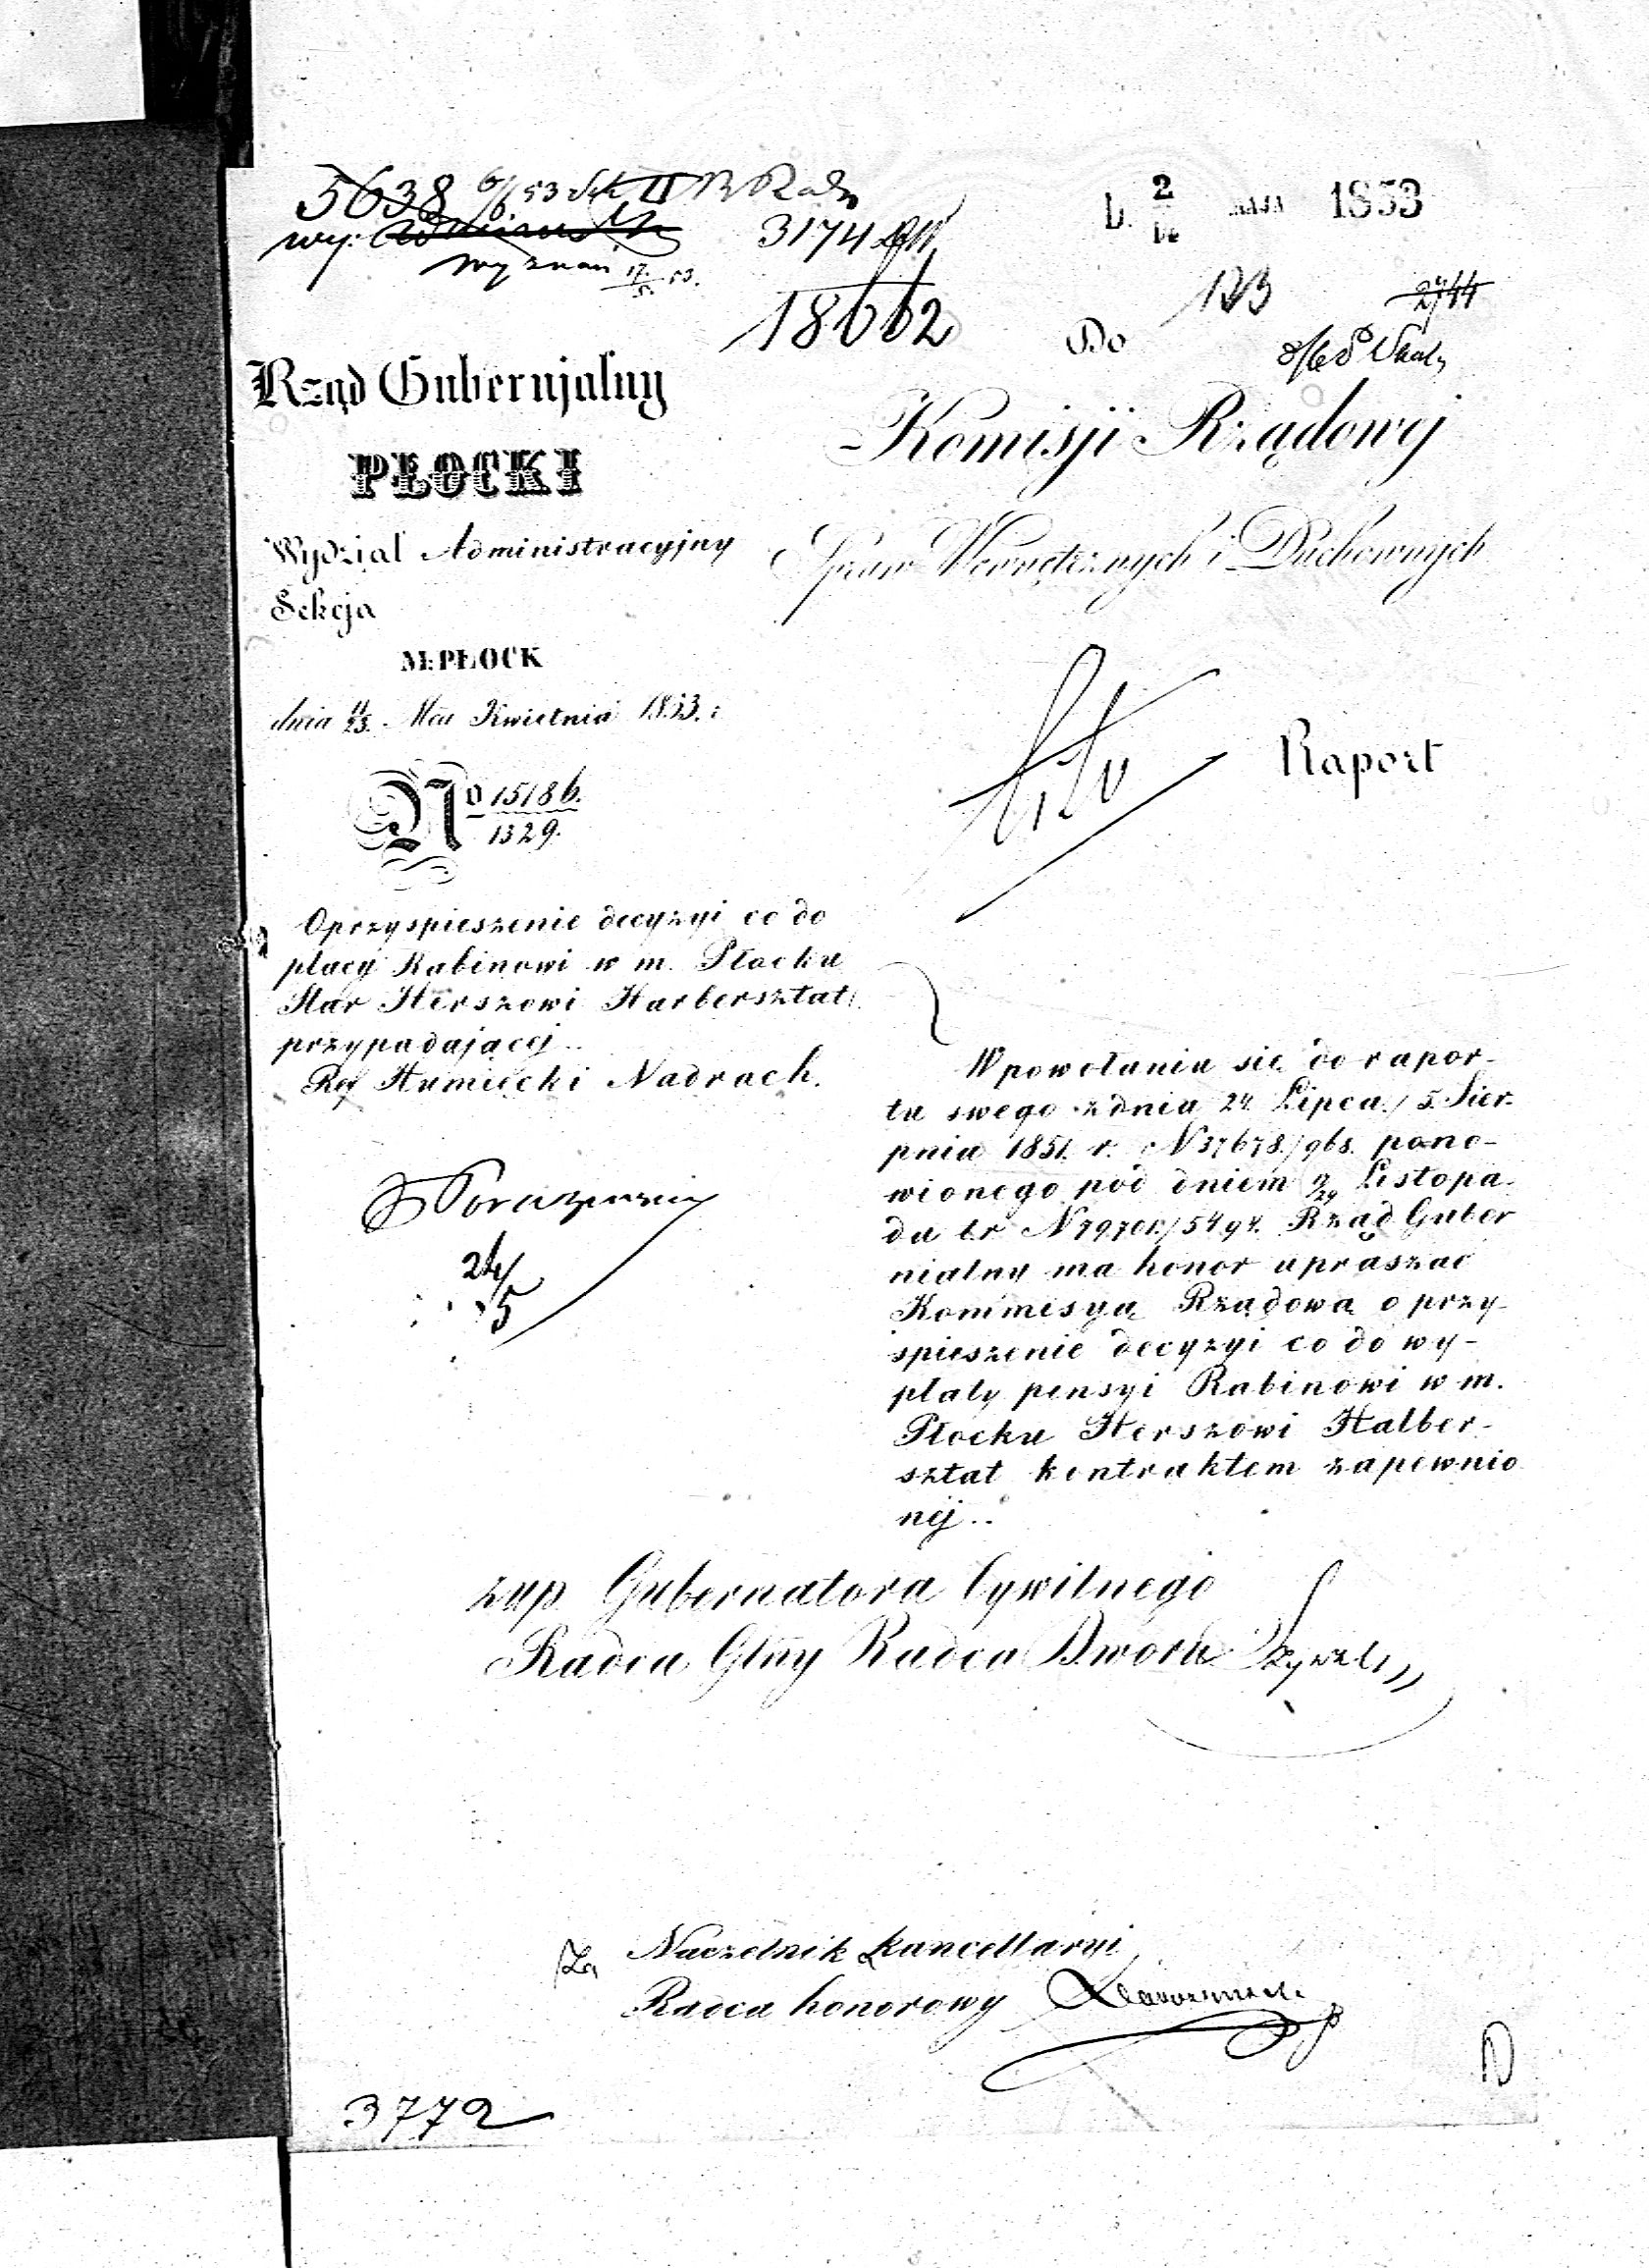 5638 6/6 53
3174
18662
D. 2 MAJA 1853
123 2744
Do
Rząd Gubernjalny
PŁOCKI
Wydział Administracyjny
Sekcja
M. PŁOCK
dnia 11/23. Mca Kwietnia 1853. r
No 15186./1329.
Komisji Rządowej
Spraw Wewnętrznych i Duchownych
Raport
O przyspieszenie decyzyi co do
płacy Rabinowi w m. Płocku
Herszowi Harbersztat
przypadającej..
Ref Humiecki Nadrach.
24/5
W powołaniu się do rapor-
tu swego z dnia 24 Lipca / 5. Sier-
pnia 1851. r. N 37678./968. pono-
wionego pod dniem Listopa-
da br Rząd Guber
nialny ma honor upraszać
Kommisyą Rządową o przy-
spieszenie decyzyi co do wy-
płaty pensyi Rabinowi w m.
Płocku Herszowi Halber-
sztat kontraktem zapewnio
nej..
zup Gubernatora Cywilnego
Radca Glny Radca Dworu
Za Naczelnik Kancellaryi
Radca honorowy
3772